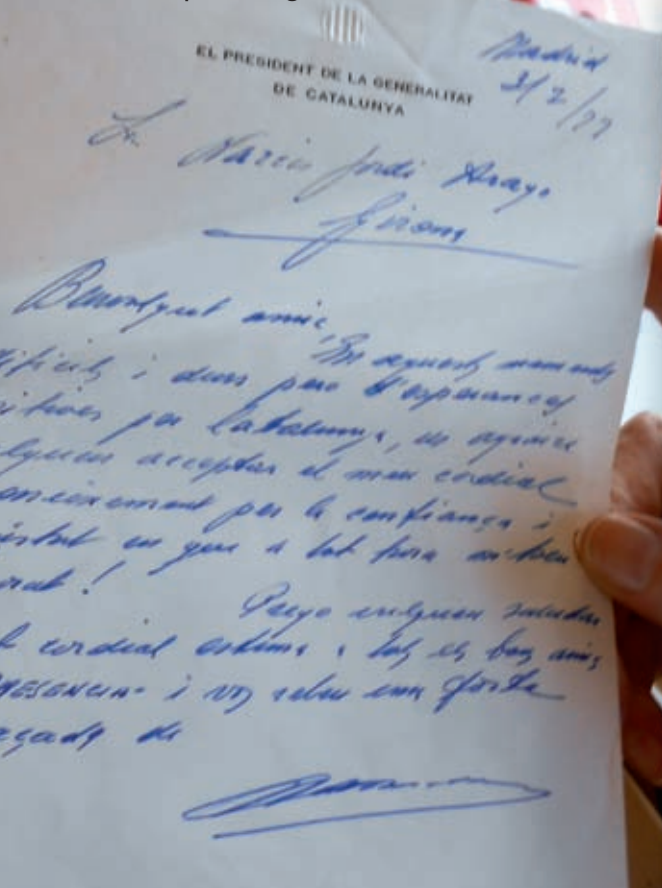 EL PRESIDENT DE LA GENERALITAT
DE CATALUNYA
Madrid
2/77
Sr. Narcís Jordi Aragó
Girona
Benvolgut amic,
En aquests moments
difícils i durs pero d'esperances
per Catalunya, us agrairé
acceptar el meu cordial
per la confiança i
en que a tot hora m'heu
!
Prego vulgueu saludar
cordial estima a tots els bons amics
PRESENCIA" i vos rebeu una forta
de